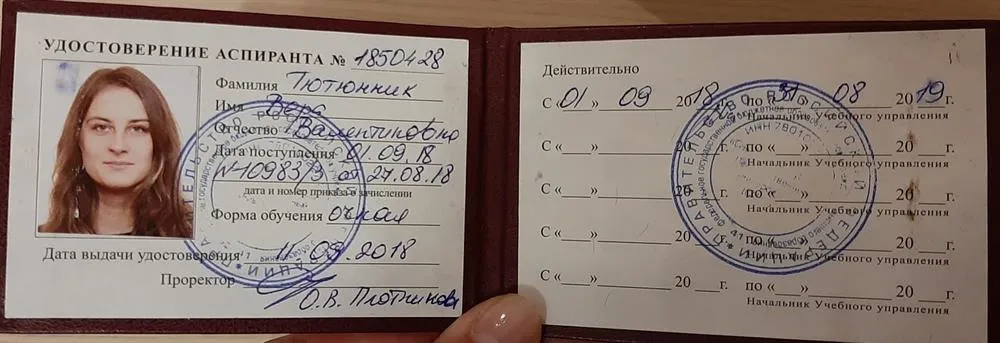 УДОСТОВЕРЕНИЕ АСПИРАНТА № 1850428
Фамилия Тютюнник
Имя Вера
Отчество Валентиновна
Дата поступления 01.09.18
№ 10983/3 от 27.08.18
дата и номер приказа о зачислении
Форма обучения очная
Дата выдачи удостоверения 11.09.2018
Проректор
О.В.
Действительно
С «01» 09 2018 по «31» 08 2019 г.
Начальник Учебного управления
С «___» ______ 20___ по «___» ______ 20___ г.
Начальник Учебного управления
С «___» ______ 20___ по «___» ______ 20___ г.
Начальник Учебного управления
С «___» ______ 20___ по «___» ______ 20___ г.
Начальник Учебного управления
С «___» ______ 20___ по «___» ______ 20___ г.
Начальник Учебного управления